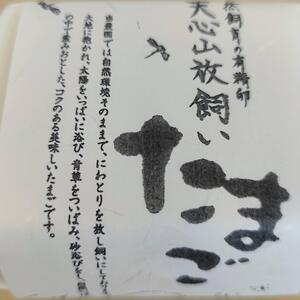 然飼育の有精卵
天心山放飼い
たまご
当農園では自然環境そのままで、にわとりを放し飼いにしており
大地に抱かれ、太陽をいっぱいに浴び、青草をついばみ、砂浴びをし
の中で産みおとした、コクのある美味しいたまごです。